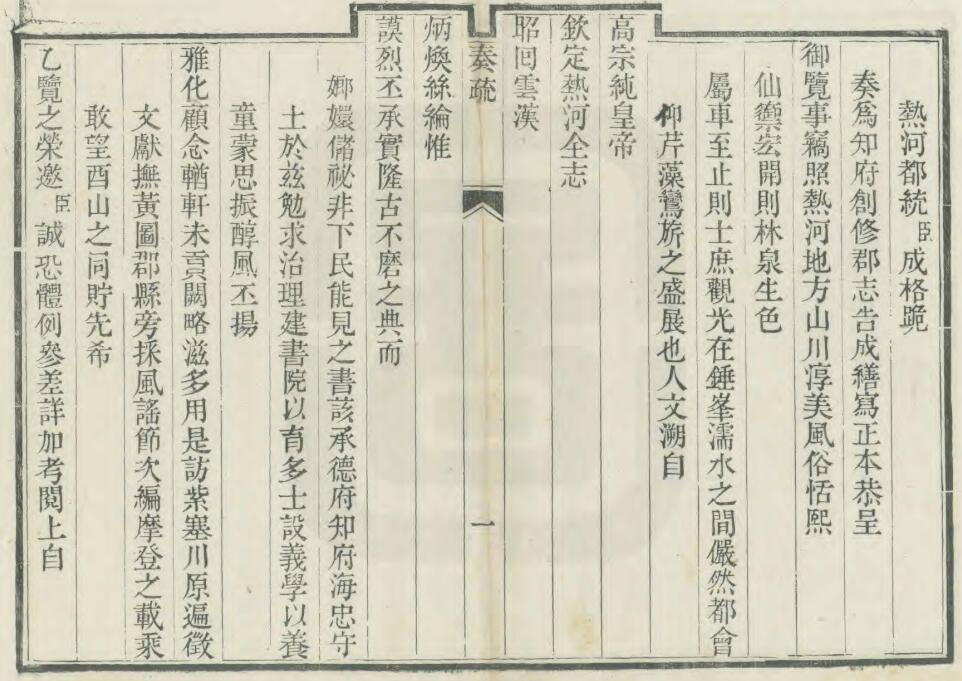 熱河都統臣成格跪
奏爲知府創修郡志告成繕寫正本恭呈
御覽事竊照熱河地方山川淳美風俗恬熙
仙籞宏開則林泉生色
屬車至止則士庶觀光在錘峯濡水之間儼然都會
仰芹藻鸞旂之盛展也人文溯自
高宗純皇帝
欽定熱河全志
昭回雲漢
奏疏
一
炳煥絲綸惟
謨烈丕承實隆古不磨之典而
嫏嬛儲祕非下民能見之書該承德府知府海忠守
土於兹勉求治理建書院以育多士設義學以養
童蒙思振醇風丕揚
雅化顧念輶軒未貢闕略滋多用是訪紫塞川原遍徵
文獻撫黃圖郡縣旁採風謠節次編摩登之載乘
敢望酉山之同貯先希
乙覽之榮邀臣誠恐體例參差詳加考閱上自